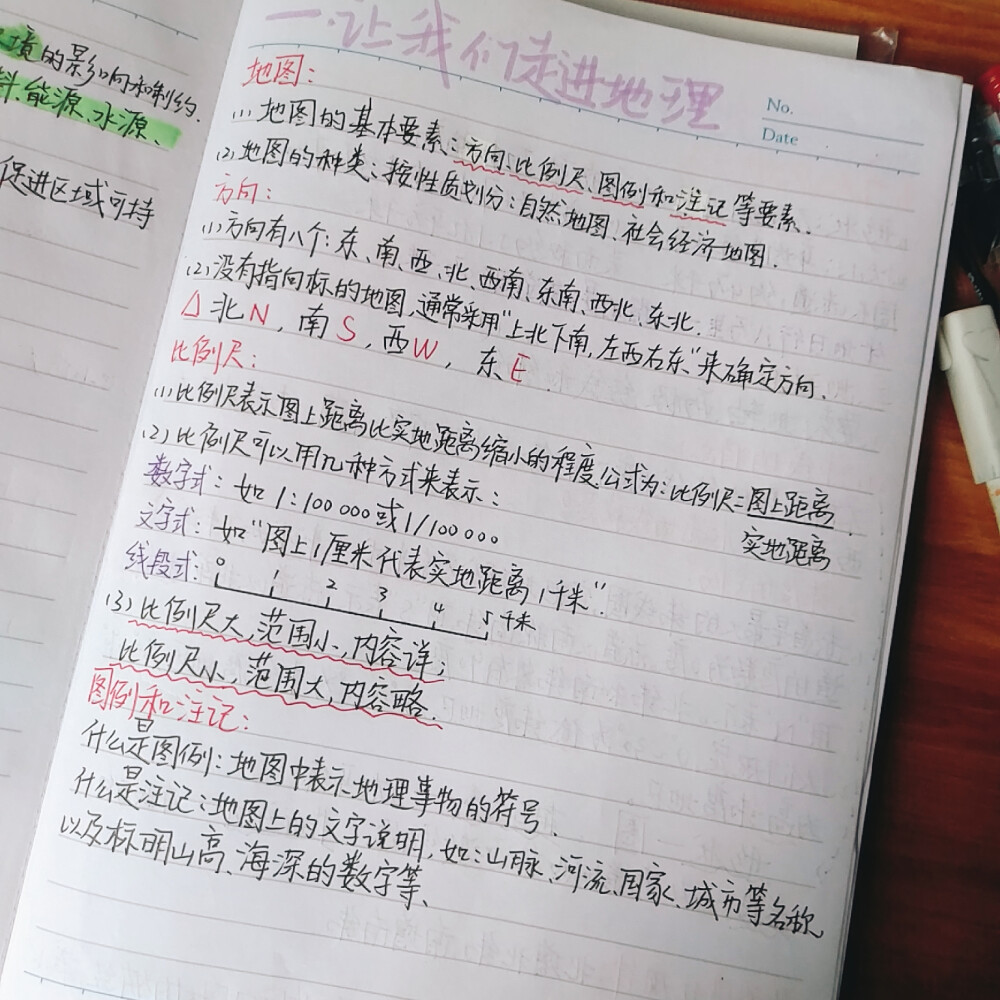 境的影响和制约.
料、能源、水源、
促进区域可持
一.让我们走进地理
No.
Date
地图:
(1)地图的基本要素:方向、比例尺、图例和注记等要素.
(2)地图的种类:按性质划分:自然地图、社会经济地图.
方向:
(1)方向有八个:东、南、西、北、西南、东南、西北、东北.
(2)没有指向标的地图,通常采用"上北下南,左西右东"来确定方向.
△北N,南S,西W,东E
比例尺:
(1)比例尺表示图上距离比实地距离缩小的程度.公式为:比例尺=图上距离
实地距离
(2)比例尺可以用几种方式来表示:
数字式:如1:100 000或1/100000
文字式:如"图上1厘米代表实地距离1千米".
线段式: 0 1 2 3 4 5千米
(3)比例尺大,范围小,内容详;
比例尺小,范围大,内容略.
图例和注记:
什么是图例:地图中表示地理事物的符号.
什么是注记:地图上的文字说明,如:山脉、河流、国家、城市等名称
以及标明山高、海深的数字等、